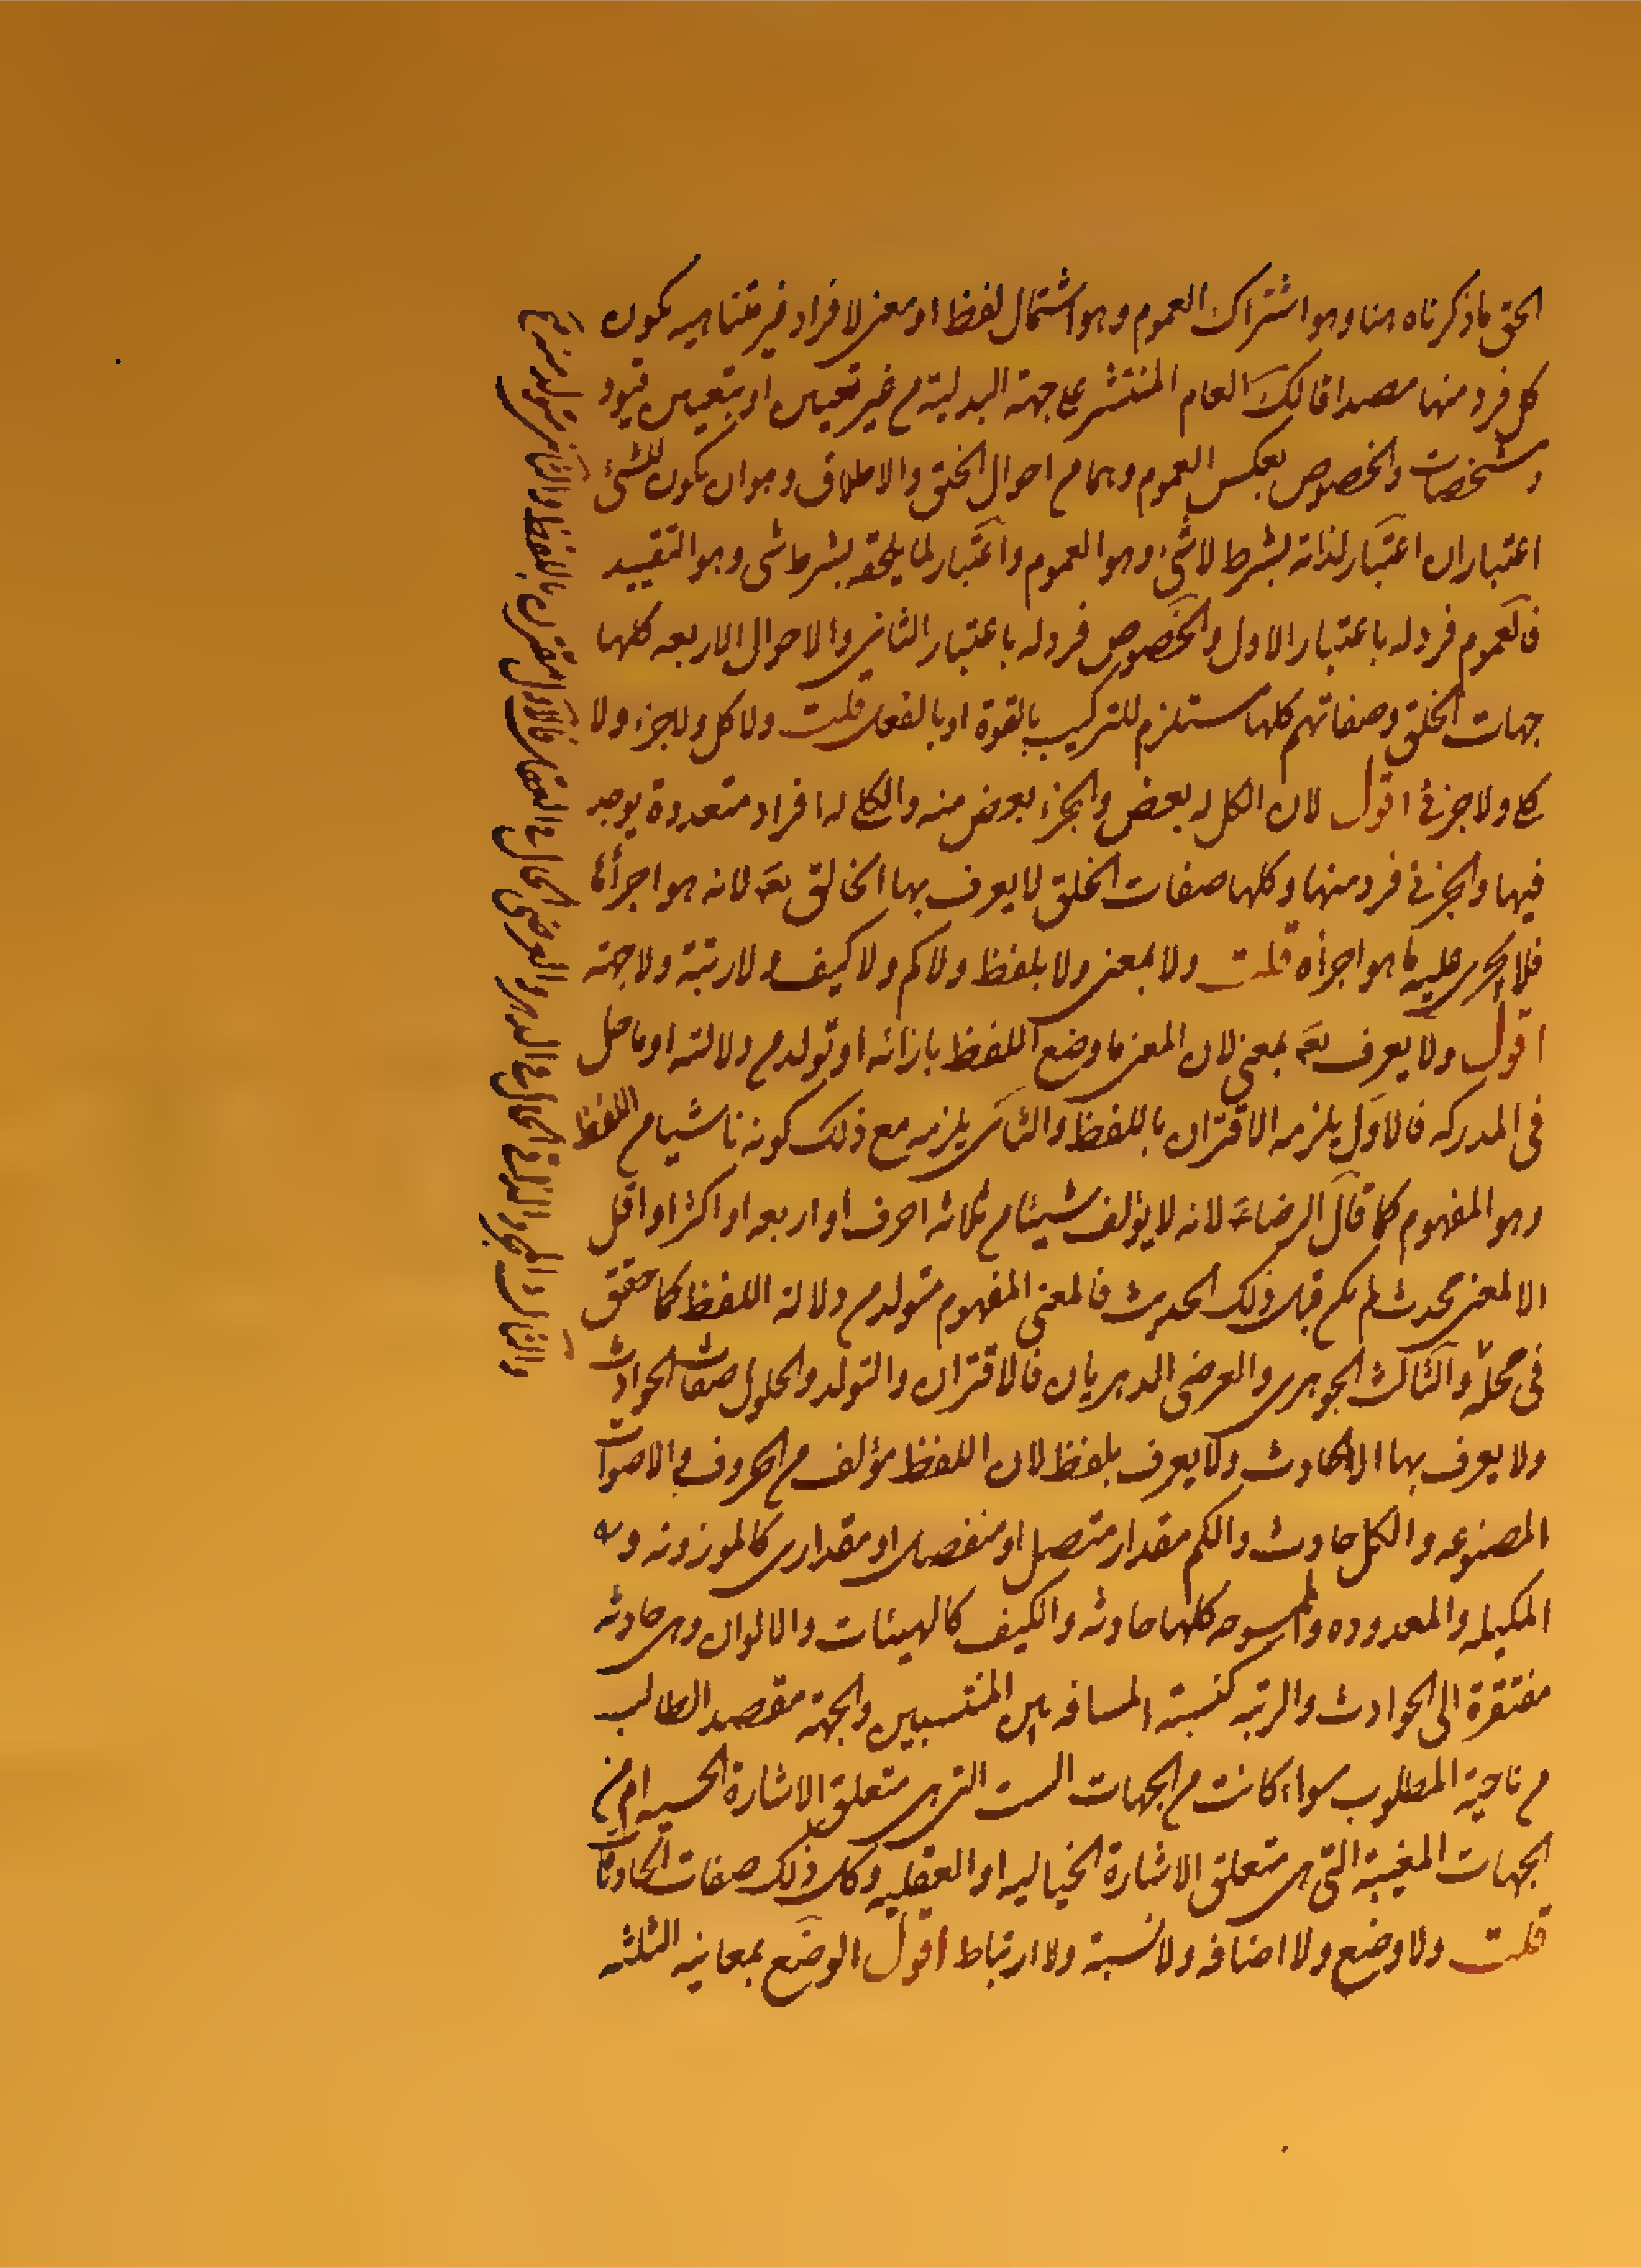 الحق ما ذكرناه هنا وهو اشتراك العموم وهو اشتمال لفظ او معنى لافراد غير متناهيه يكون
كل فرد منها مصداقا لذلك العام المنتشر على جهة البدلية من غير تعيين او بتعيين قيود
ومشخصات والخصوص بعكس العموم وهما من احوال الخلق والاطلاق وهو ان يكون للشئ
اعتباران اعتبار لذاته بشرط لا شئ وهو العموم واعتبار لما يلحقه بشرط شئ وهو التقييد
فالعموم فرد له باعتبار الاول والخصوص فرد له باعتبار الثاني والاحوال الاربعه كلها
جهات الخلق وصفاتهم كلها مستلزم للتركيب بالقوة او بالفعل قلت ولا كل ولا جزء ولا
كلي ولا جزئي اقول لان الكل له بعض والجزء بعض منه والكلي له افراد متعددة يوجد
فيها والجزئي فرد منها وكلها صفات الخلق لا يعرف بها الخالق تعه لانه هو اجرأها
فلا يجري عليه ما هو اجرأه قلت ولا بمعنى ولا بلفظ ولا كم ولا كيف ولا رتبة ولا جهة
اقول ولا يعرف تعه بمعنى لان المعنى ما وضع اللفظ بازائه او تولد من دلالته او ما حصل
في المدركه فالاول يلزمه الاقتران باللفظ والثاني يلزمه مع ذلك كونه ناشيا من اللفظ
وهو المفهوم كما قال الرضاء لانه لا يؤلف شيئا من ثلاثه احرف او اربعه او اكثر او اقل
الا لمعنى محدث لم يكن قبل ذلك الحديث فالمعنى المفهوم متولد من دلالة اللفظ كما حقق
في محله والثالث الجوهري والعرضي الدهريان فالاقتران والتولد والحلول صفات الحوادث
ولا يعرف بها الا الحادث ولا يعرف بلفظ لان اللفظ مؤلف من الحروف والاصوات
المصنوعه والكل حادث والكم مقدار متصل او منفصل او مقداري كالموزونه و
المكيله والمعدوده والممسوحه كلها حادثه والكيف كالهيئات والالوان وهي حادثه
مفتقرة الى الحوادث والرتبه كنسبة المسافه بين المنتسبين والجهة مقصد الطالب
من ناحية المطلوب سواء كانت من الجهات الست التي هي متعلق الاشارة الحسيه ام من
الجهات المغيبة التي هي متعلق الاشارة الخياليه او العقليه وكل ذلك صفات الحادثات
قلت ولا وضع ولا اضافه ولا نسبة ولا ارتباط اقول الوضع بمعانيه الثلثه